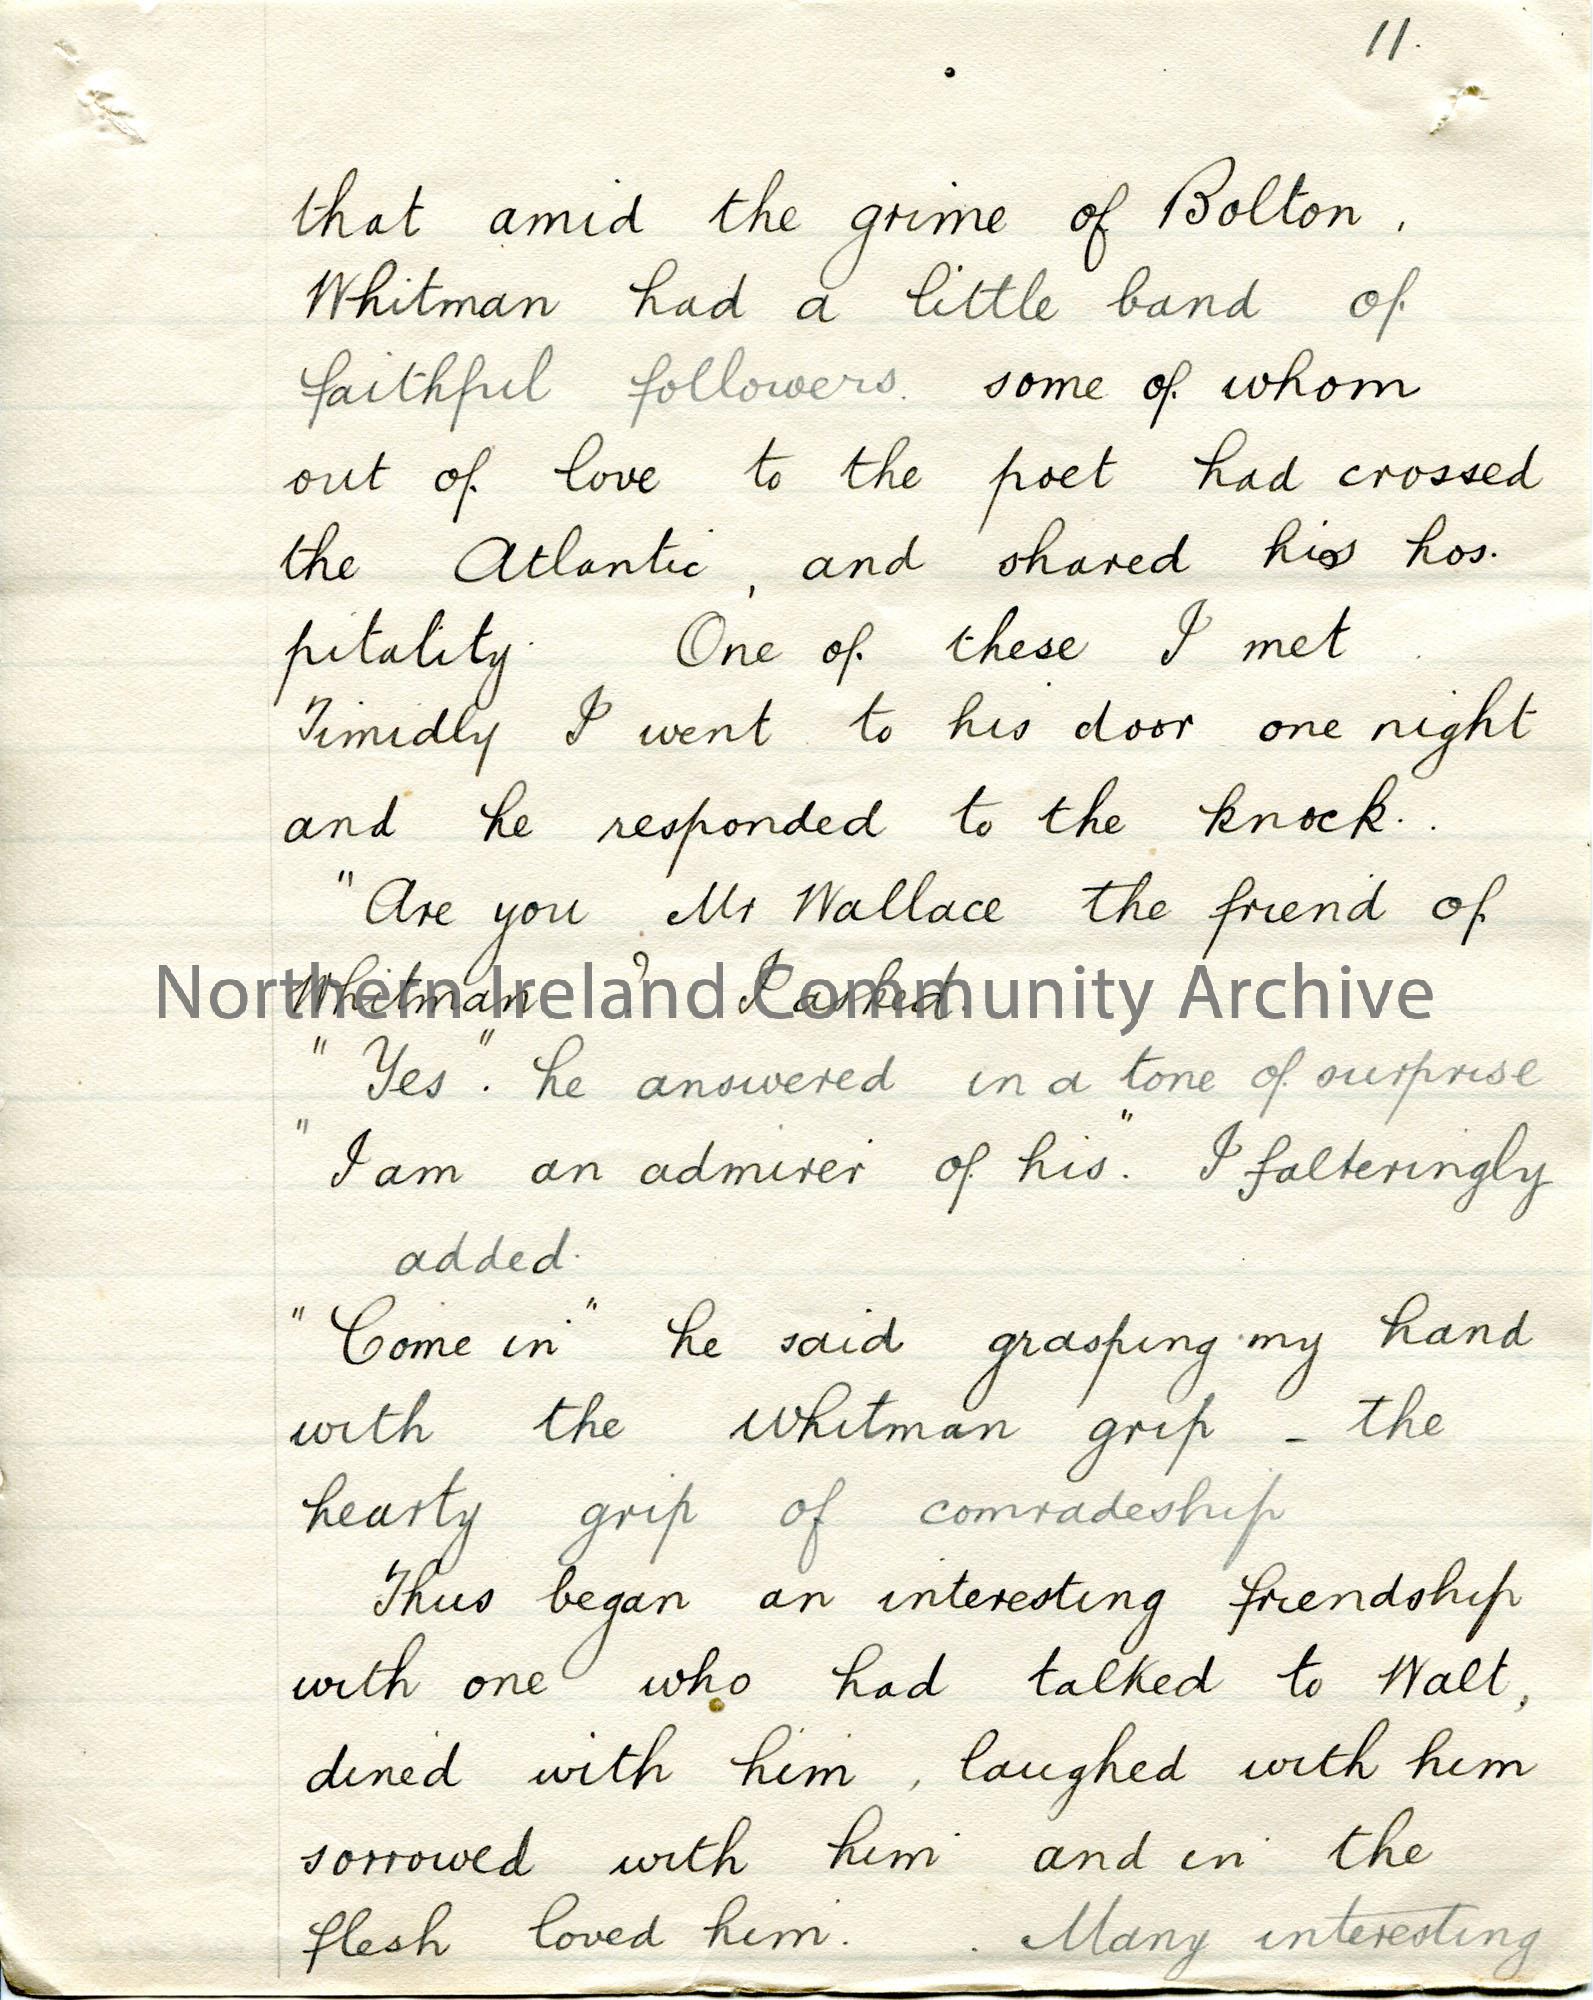 11.
that amid the grime of Bolton,
Whitman had a little band of
faithful followers. some of whom
out of love to the poet had crossed
the Atlantic, and shared his hos.
pitality. One of these I met.
Timidly I went to his door one night
and he responded to the knock..
"Are you Mr Wallace the friend of
Whitman? I asked.
Northern Ireland Community Archive
"Yes". he answered in a tone of surprise
"I am an admirer of his." I falteringly
added.
"Come in" he said grasping my hand
with the Whitman grip - the
hearty grip of comradeship
Thus began an interesting friendship
with one who had talked to Walt,
dined with him, laughed with him
sorrowed with him and in the
flesh loved him. . Many interesting